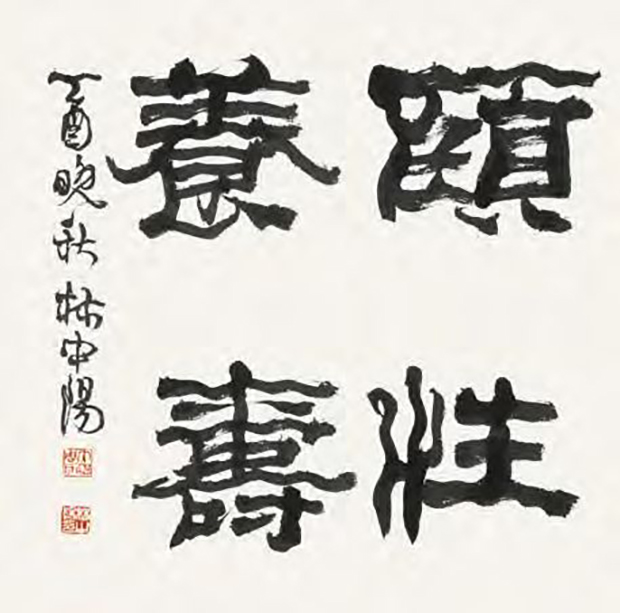 頤性
養壽
丁酉晚秋 林中陽